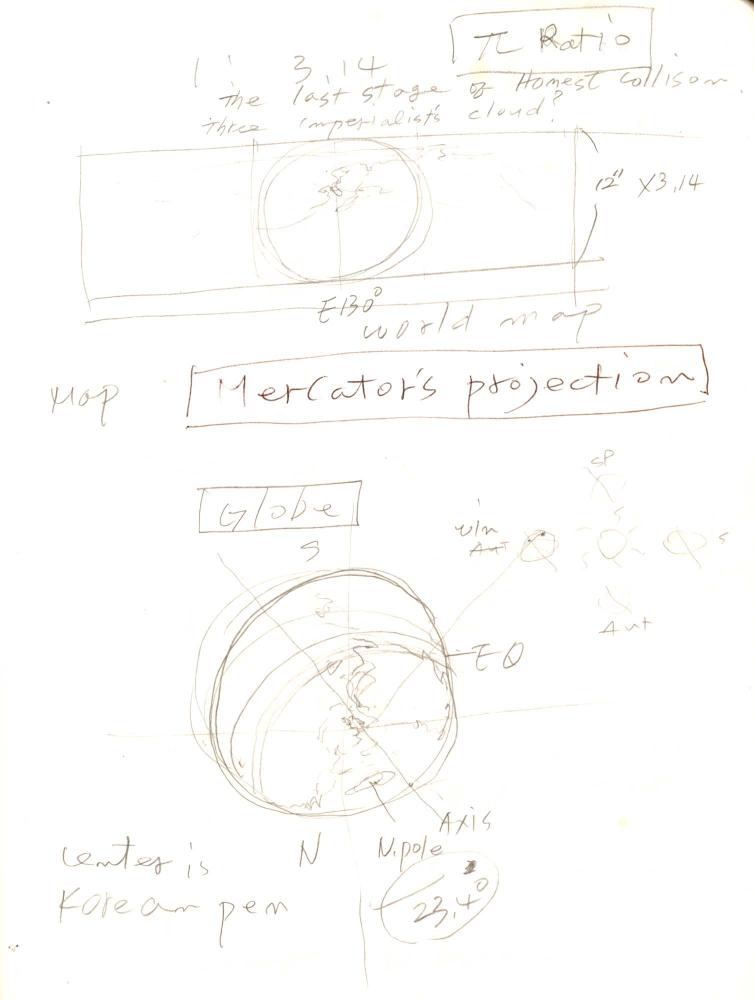 π Ratio
1 : 3,14
the last stage of Honest Collison
three imperialist's cloud?
12" X3,14
E130°
world map
Map
Mercator's projection
Globe
S
SP
S
win
Aut
S
S
Aut
EQ
Axis
N
N.pole
23,4°
center is
Korean pen